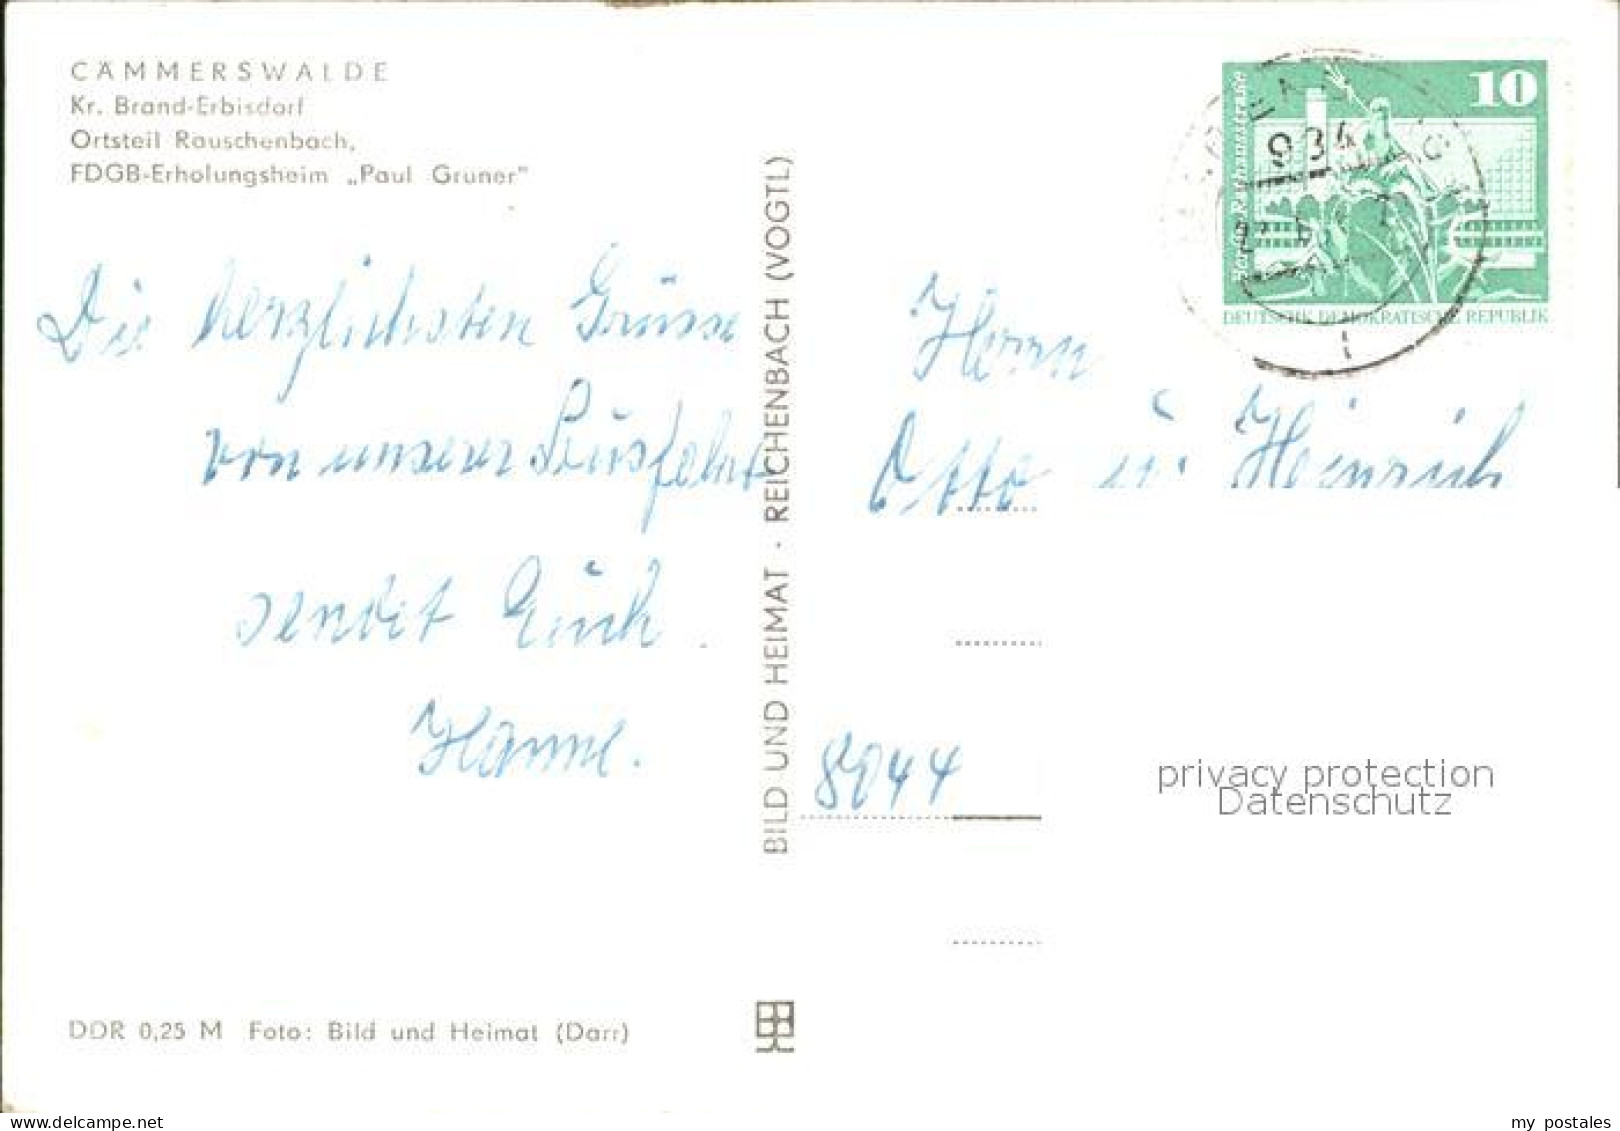 CÄMMERSWALDE
Kr. Brand-Erbisdorf
Ortsteil Rauschenbach,
FDGB-Erholungsheim „Paul Gruner"
Die herzlichsten Grüsse
von unserer Ausfahrt
sendet Euch
Hanne.
DDR 0,25 M Foto: Bild und Heimat (Darr)
BILD UND HEIMAT · REICHENBACH (VOGTL)
10
Rathausstraße
DEUTSCHE DEMOKRATISCHE REPUBLIK
934
Herrn
Otto u. Heinrich
8044
privacy protection
Datenschutz
www.delcampe.net
my_postales